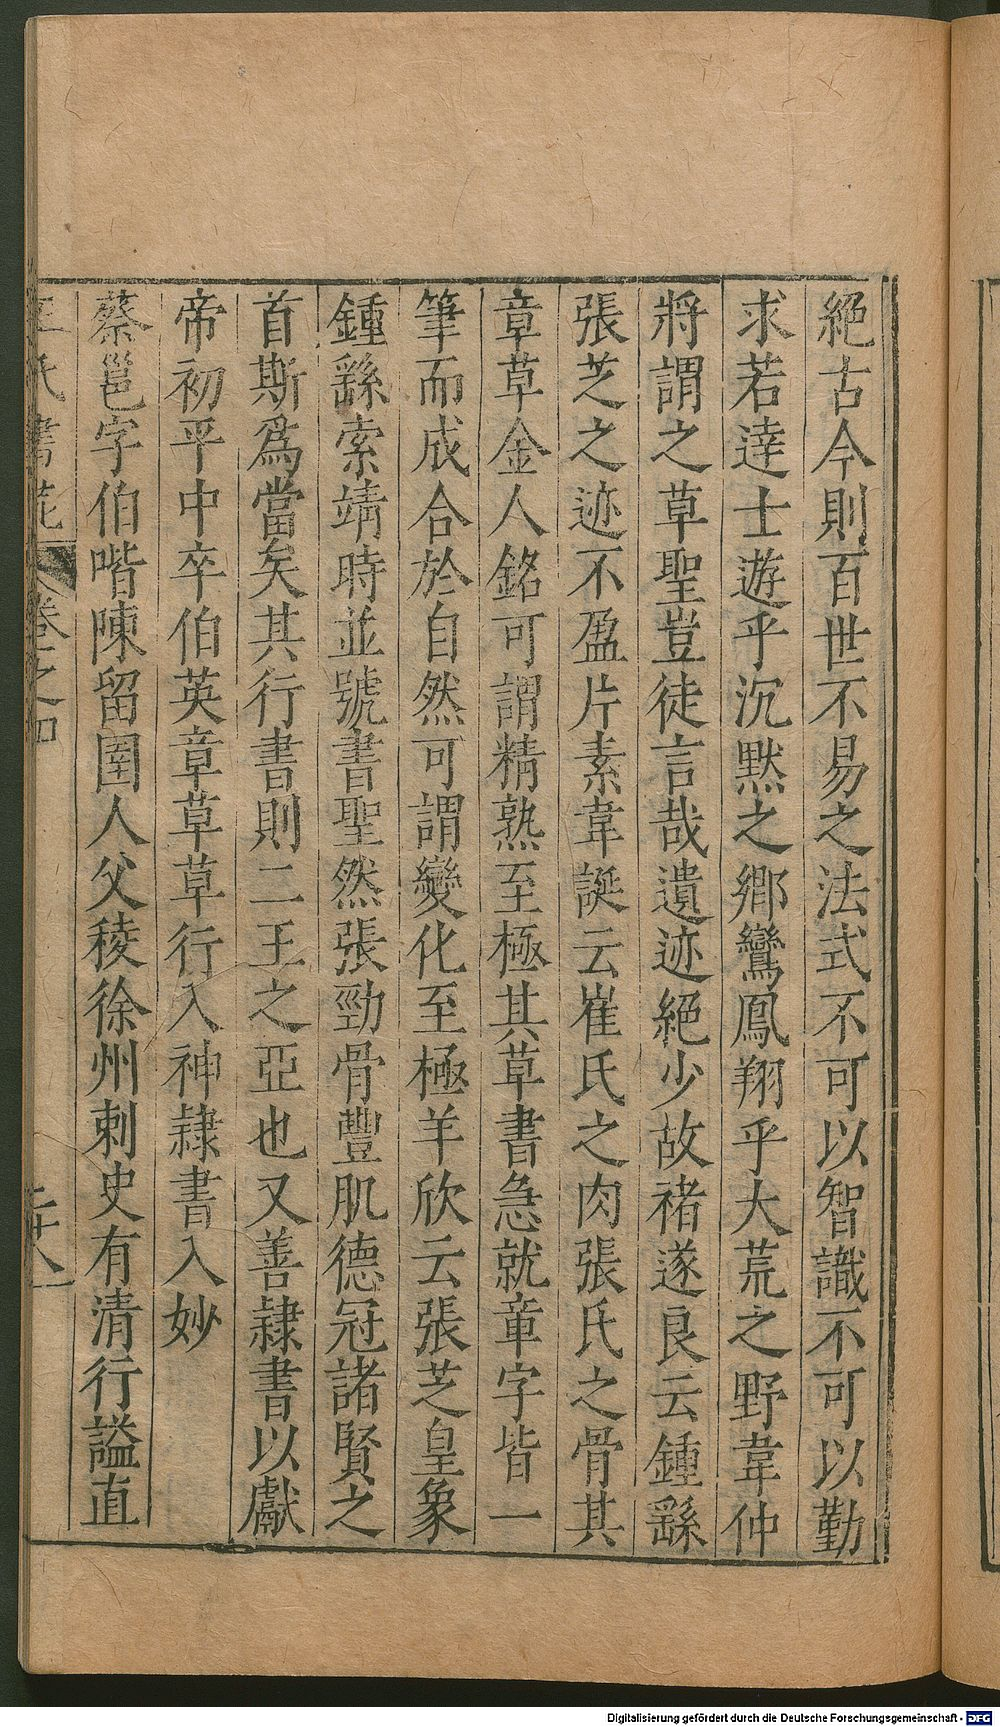 絕古今則百世不易之法式不可以智識不可以勤
求若達士遊乎沉默之鄉鸞鳳翔乎大荒之野韋仲
將謂之草聖豈徒言哉遺迹絕少故褚遂良云鍾繇
張芝之迹不盈片素韋誕云崔氏之肉張氏之骨其
章草金人銘可謂精熟至極其草書急就章字皆一
筆而成合於自然可謂變化至極羊欣云張芝皇象
鍾繇索靖時並號書聖然張勁骨豐肌德冠諸賢之
首斯爲當矣其行書則二王之亞也又善隷書以獻
帝初平中卒伯英章草草行入神隷書入妙
蔡邕字伯喈陳留圉人父稜徐州刺史有清行謚直
王氏書苑 卷之四 二十八
Digitalisierung gefördert durch die Deutsche Forschungsgemeinschaft - DFG